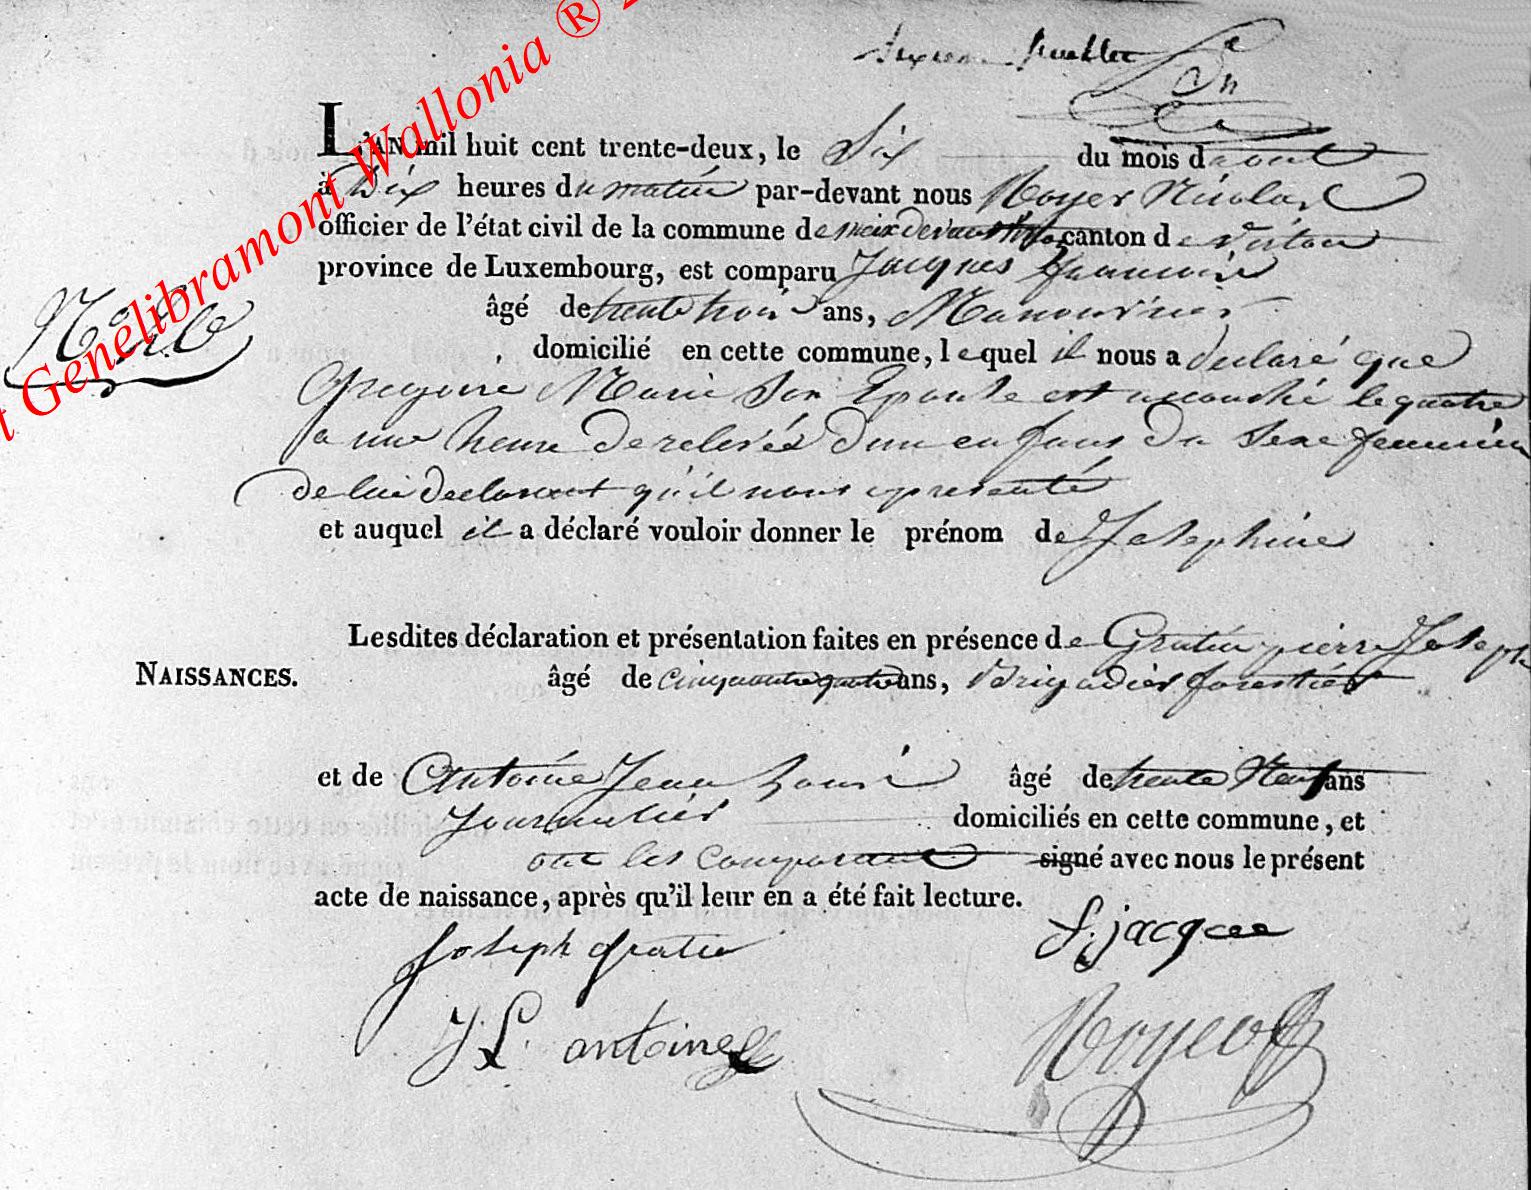 feuillet
L'AN mil huit cent trente-deux, le Six du mois d'aout
à Dix heures du matin par-devant nous Noyer Nicolas
officier de l'état civil de la commune de meix devant Virton canton de Virton
province de Luxembourg, est comparu Jacques francois
âgé de trente trois ans, Manouvrier
N° 26
domicilié en cette commune, lequel il nous a declaré que
Gregoire Marie Son Epouse est accouché le quatre
a une heure de relevés d'un enfans du Sexe feminin
de lui declarant qu'il nous a presenté
et auquel il a déclaré vouloir donner le prénom de Josephine
Lesdites déclaration et présentation faites en présence de Gratia pierre Joseph
NAISSANCES.
âgé de cinquante quatre ans, Brigadier forestier
et de Antoine Jean Louis âgé de trente Neuf ans
Journalier domiciliés en cette commune, et
ont les Comparant signé avec nous le présent
acte de naissance, après qu'il leur en a été fait lecture.
Joseph Gratia f. jacque
J L. antoine Noyer
t Genelibramont Wallonia ® 2